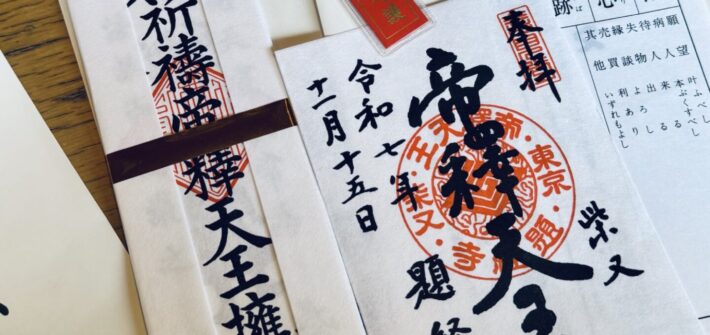 奉拝
帝釋天王
柴又
題経
令和七年
十一月十五日
東京・柴又・題経寺・帝釋天王
祈禱帝釋天王擁
護
跡
心
願望
病人
待人
失物
縁談
売買
其他
叶ふべし
本ぷくすべし
来る
出る
よろし
利あり
いづれもよし